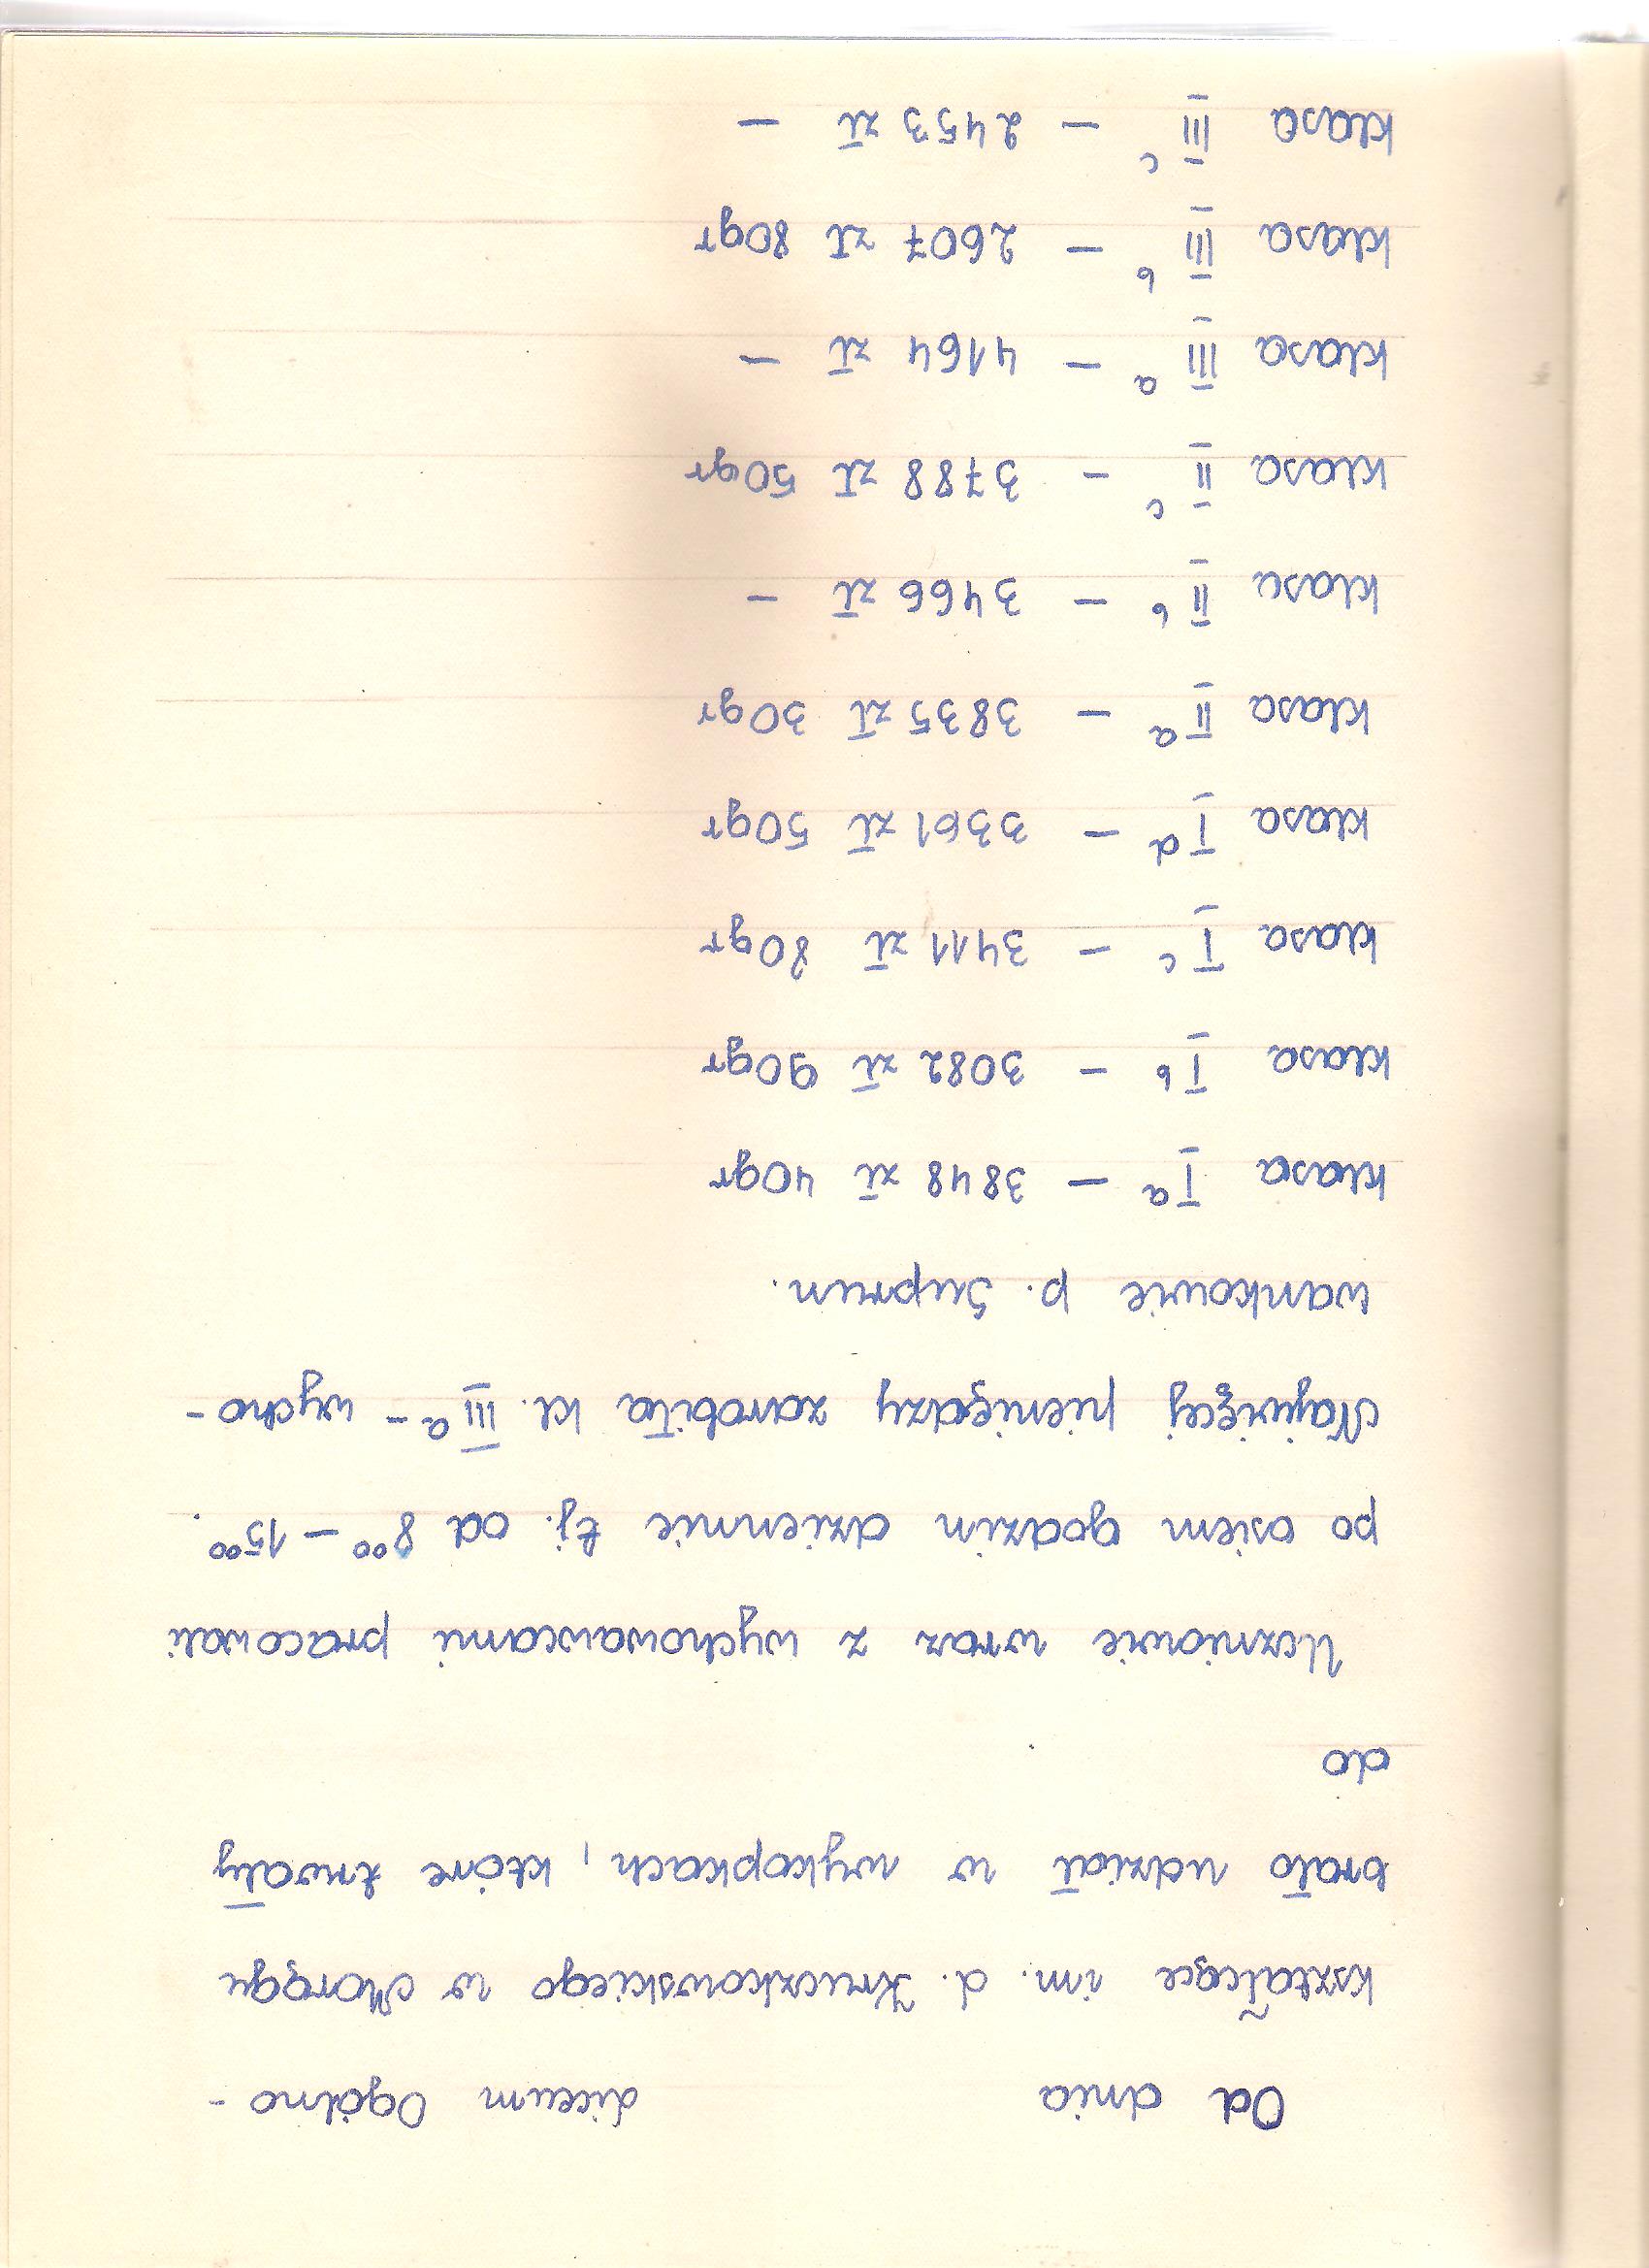 Od dnia Liceum Ogólno-
kształcące im. L. Kruczkowskiego w Morągu
brało udział w wykopkach, które trwały
do
Uczniowie wraz z wychowawcami pracowali
po osiem godzin dziennie tj. od 8⁰⁰ – 15⁰⁰.
Najwięcej pieniędzy zarobiła kl. III a – wycho-
wankowie p. Suprun.
klasa I a – 3848 zł 40gr
klasa I b – 3082 zł 90gr
klasa I c – 3411 zł 80gr
klasa I d – 3361 zł 50gr
klasa II a – 3835 zł 30gr
klasa II b – 3466 zł –
klasa II c – 3788 zł 50gr
klasa III a – 4164 zł –
klasa III b – 2607 zł 80gr
klasa III c – 2453 zł –